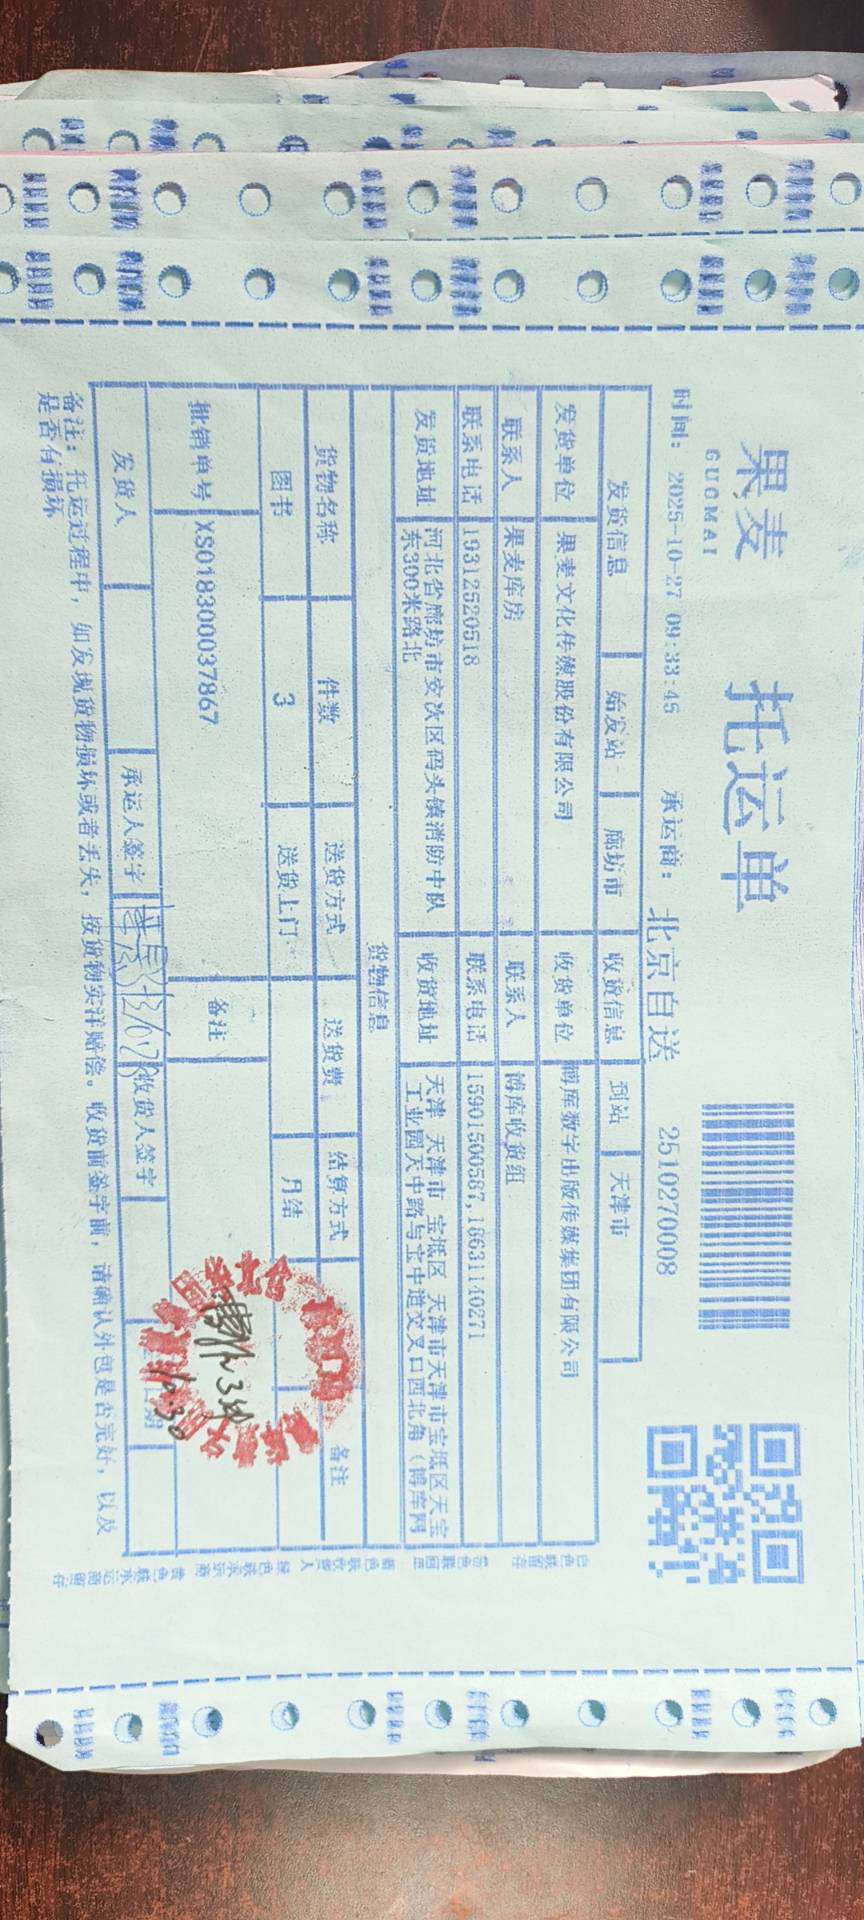 果麦
GUOMAI
托运单
2510270008
时间： 2025-10-27 09:33:45 承运商： 北京自送
发货信息 始发站 廊坊市 收货信息 到站 天津市
发货单位 果麦文化传媒股份有限公司 收货单位 博库数字出版传媒集团有限公司
联系人 果麦库房 联系人 博库收货组
联系电话 19312520518 联系电话 15901500587,18631140271
发货地址 河北省廊坊市安次区码头镇消防中队
东300米路北
收货地址 天津 天津市 宝坻区 天津市天津市宝坻区天宝
工业园天中路与宝中道交叉口西北角（博库网
货物信息
货物名称 件数 送货方式 送货费 结算方式 备注
图书 3 送货上门 月结
批销单号 XS018300037867 备注
发货人 承运人签字 收货人签字 日期
10.30
备注：托运过程中，如发现货物损坏或者丢失，按货物实洋赔偿。收货前签字前，请确认外包是否完好，以及
是否有损坏